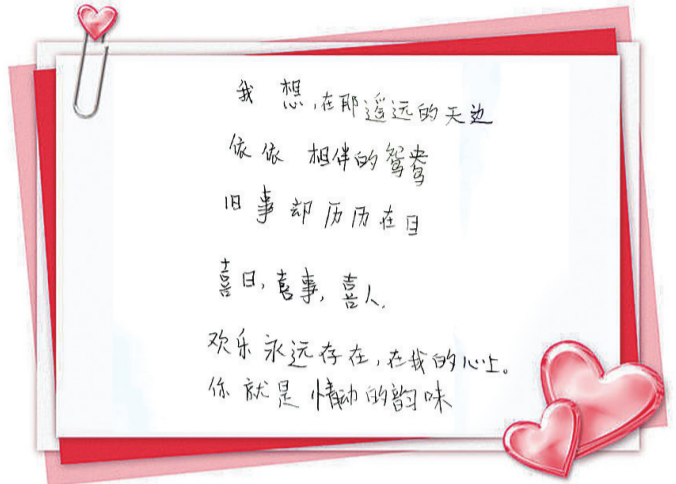 我 想,在那遥远的天边
依依 相伴的鸳鸯
旧事却历历在目
喜日,喜事,喜人.
欢乐永远存在,在我的心上。
你就是情动的韵味